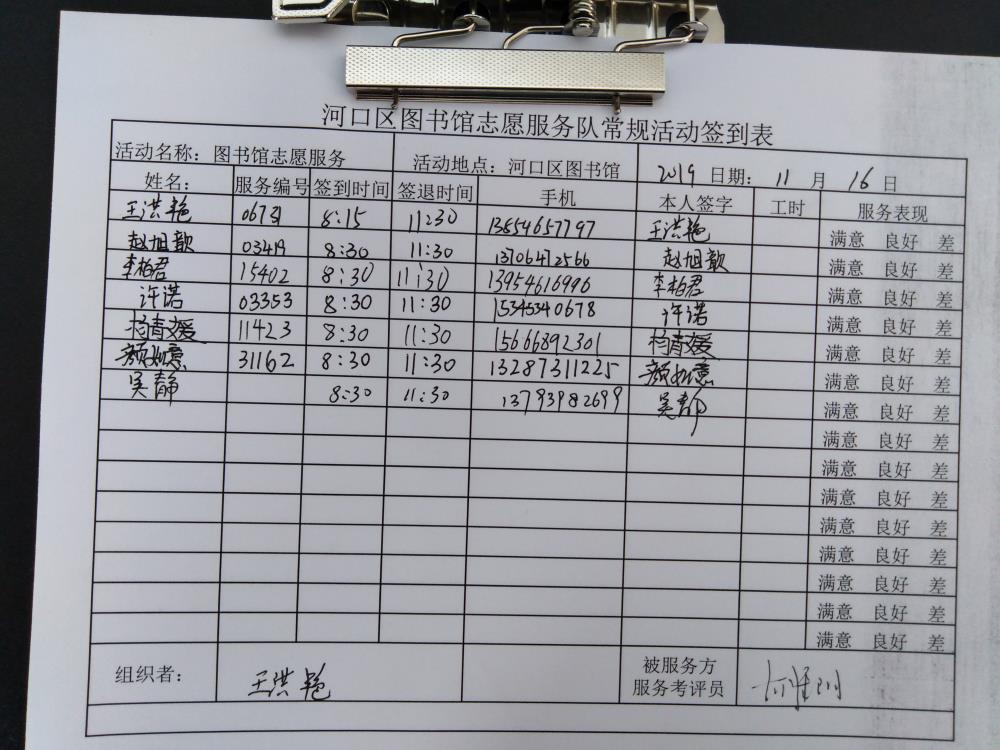 河口区图书馆志愿服务队常规活动签到表
活动名称：图书馆志愿服务 活动地点：河口区图书馆 2019 日期： 11 月 16 日
姓名： 服务编号 签到时间 签退时间 手机 本人签字 工时 服务表现
王洪艳 8:15 11:30 13854657797 王洪艳 满意 良好 差
赵旭歆 03419 8:30 11:30 13706472566 赵旭歆 满意 良好 差
李柏君 15402 8:30 11:30 13954616996 李柏君 满意 良好 差
许诺 03353 8:30 11:30 15345340678 许诺 满意 良好 差
杨青媛 11423 8:30 11:30 15666892301 杨青媛 满意 良好 差
颜如意 31162 8:30 11:30 13287311225 颜如意 满意 良好 差
吴静 8:30 11:30 13793982699 吴静 满意 良好 差
满意 良好 差
满意 良好 差
满意 良好 差
满意 良好 差
满意 良好 差
满意 良好 差
满意 良好 差
满意 良好 差
组织者： 王洪艳 被服务方
服务考评员